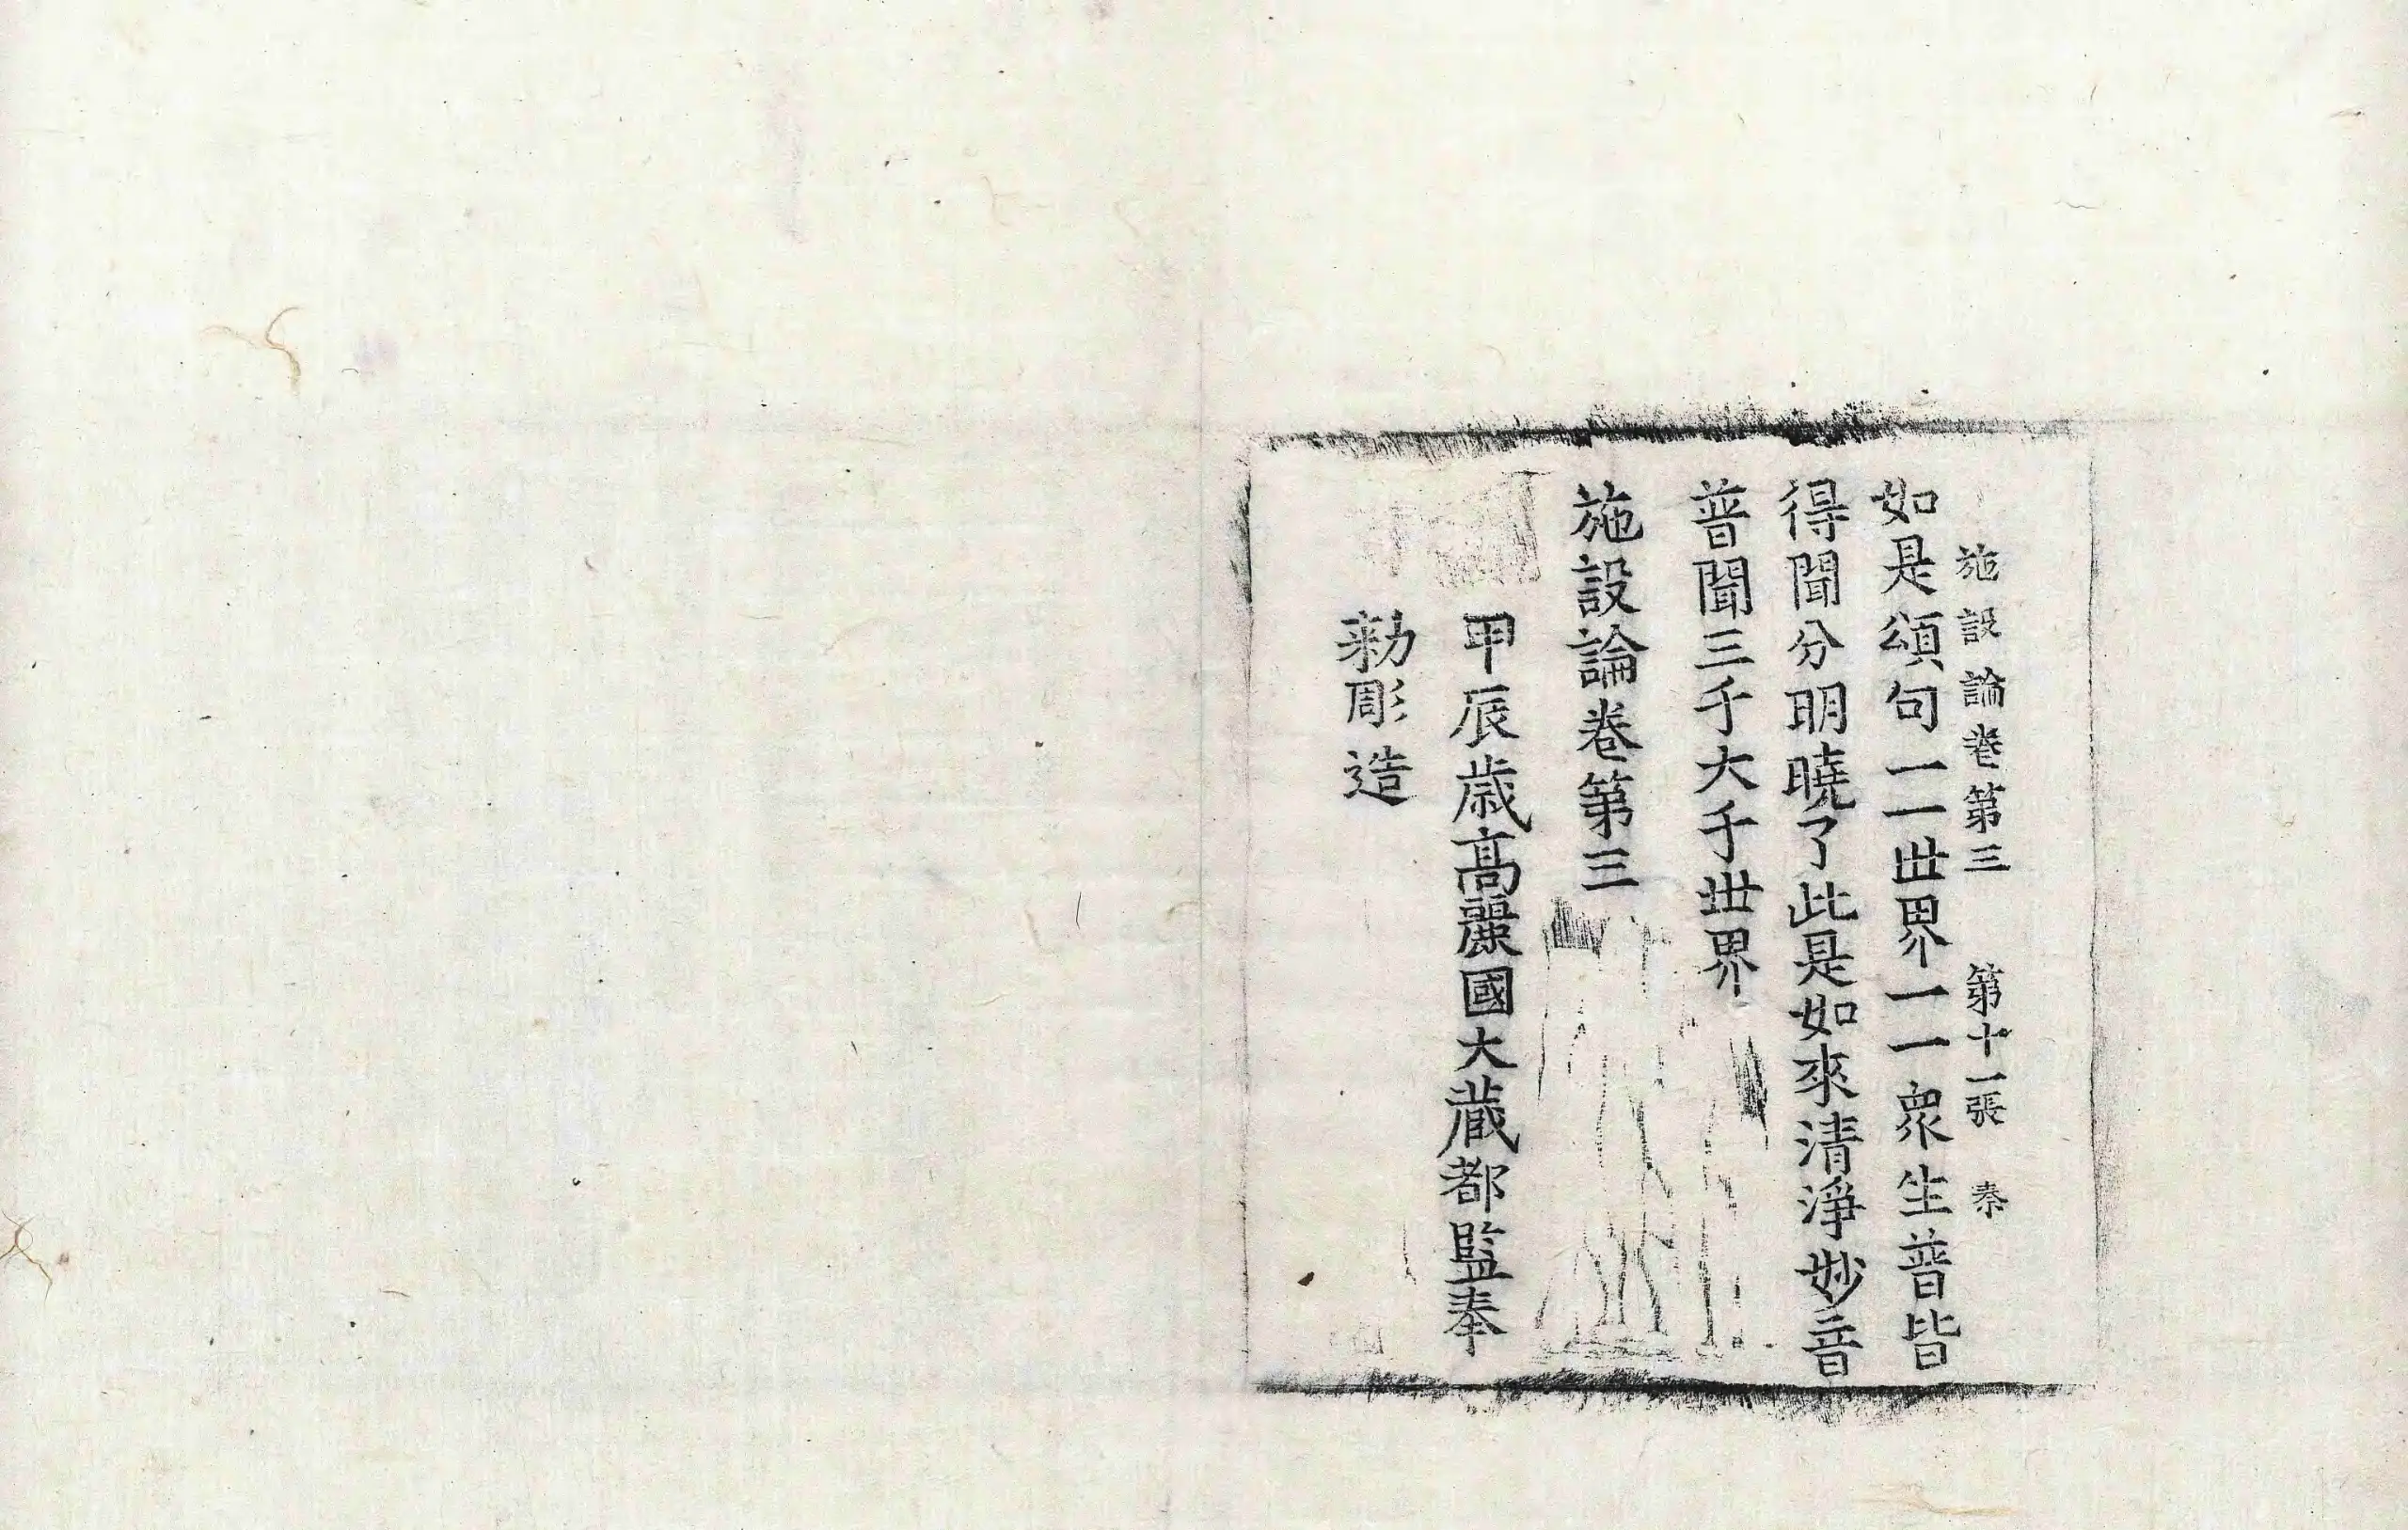 施設論卷第三　第十一張　秦
如是頌句一一世界一一衆生普皆
得聞分明曉了此是如來清淨妙音
普聞三千大千世界
施設論卷第三
甲辰歲高麗國大藏都監奉
勑彫造